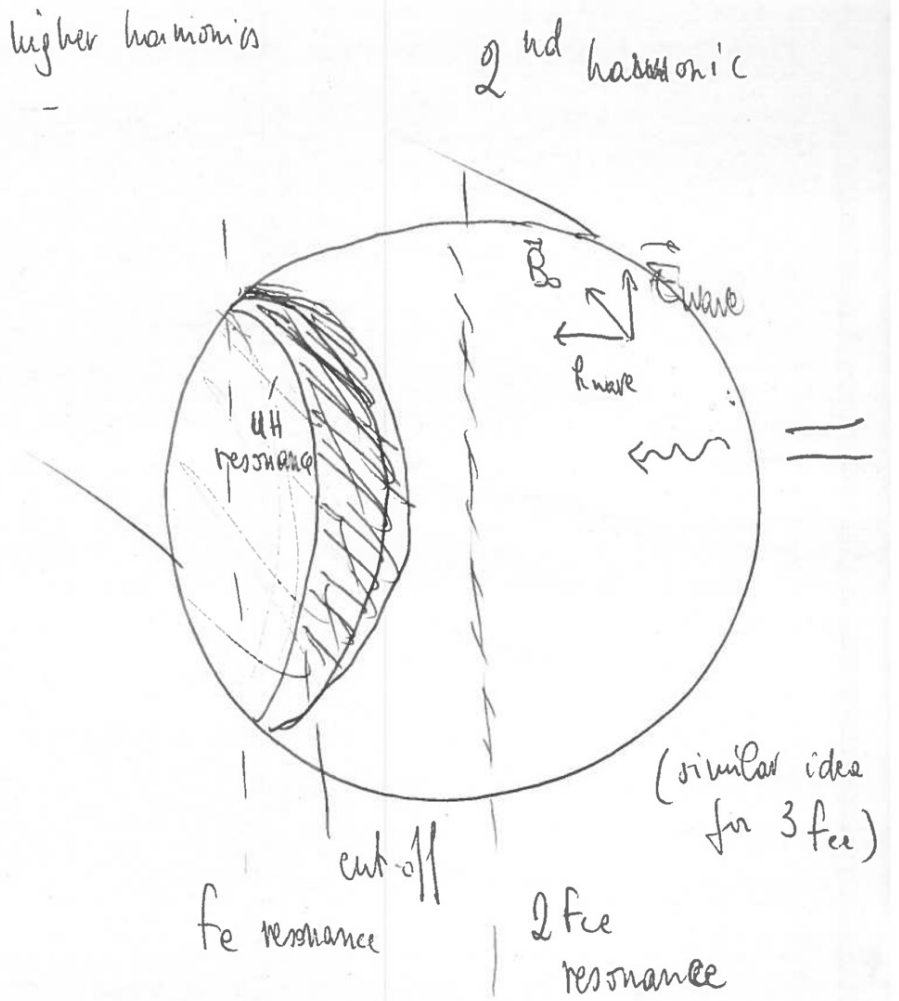 higher harmonics
2nd harmonic
B₀
E wave
k wave
UH
resonance
(similar idea
for 3 fce)
cut-off
fe resonance
2 fce
resonance